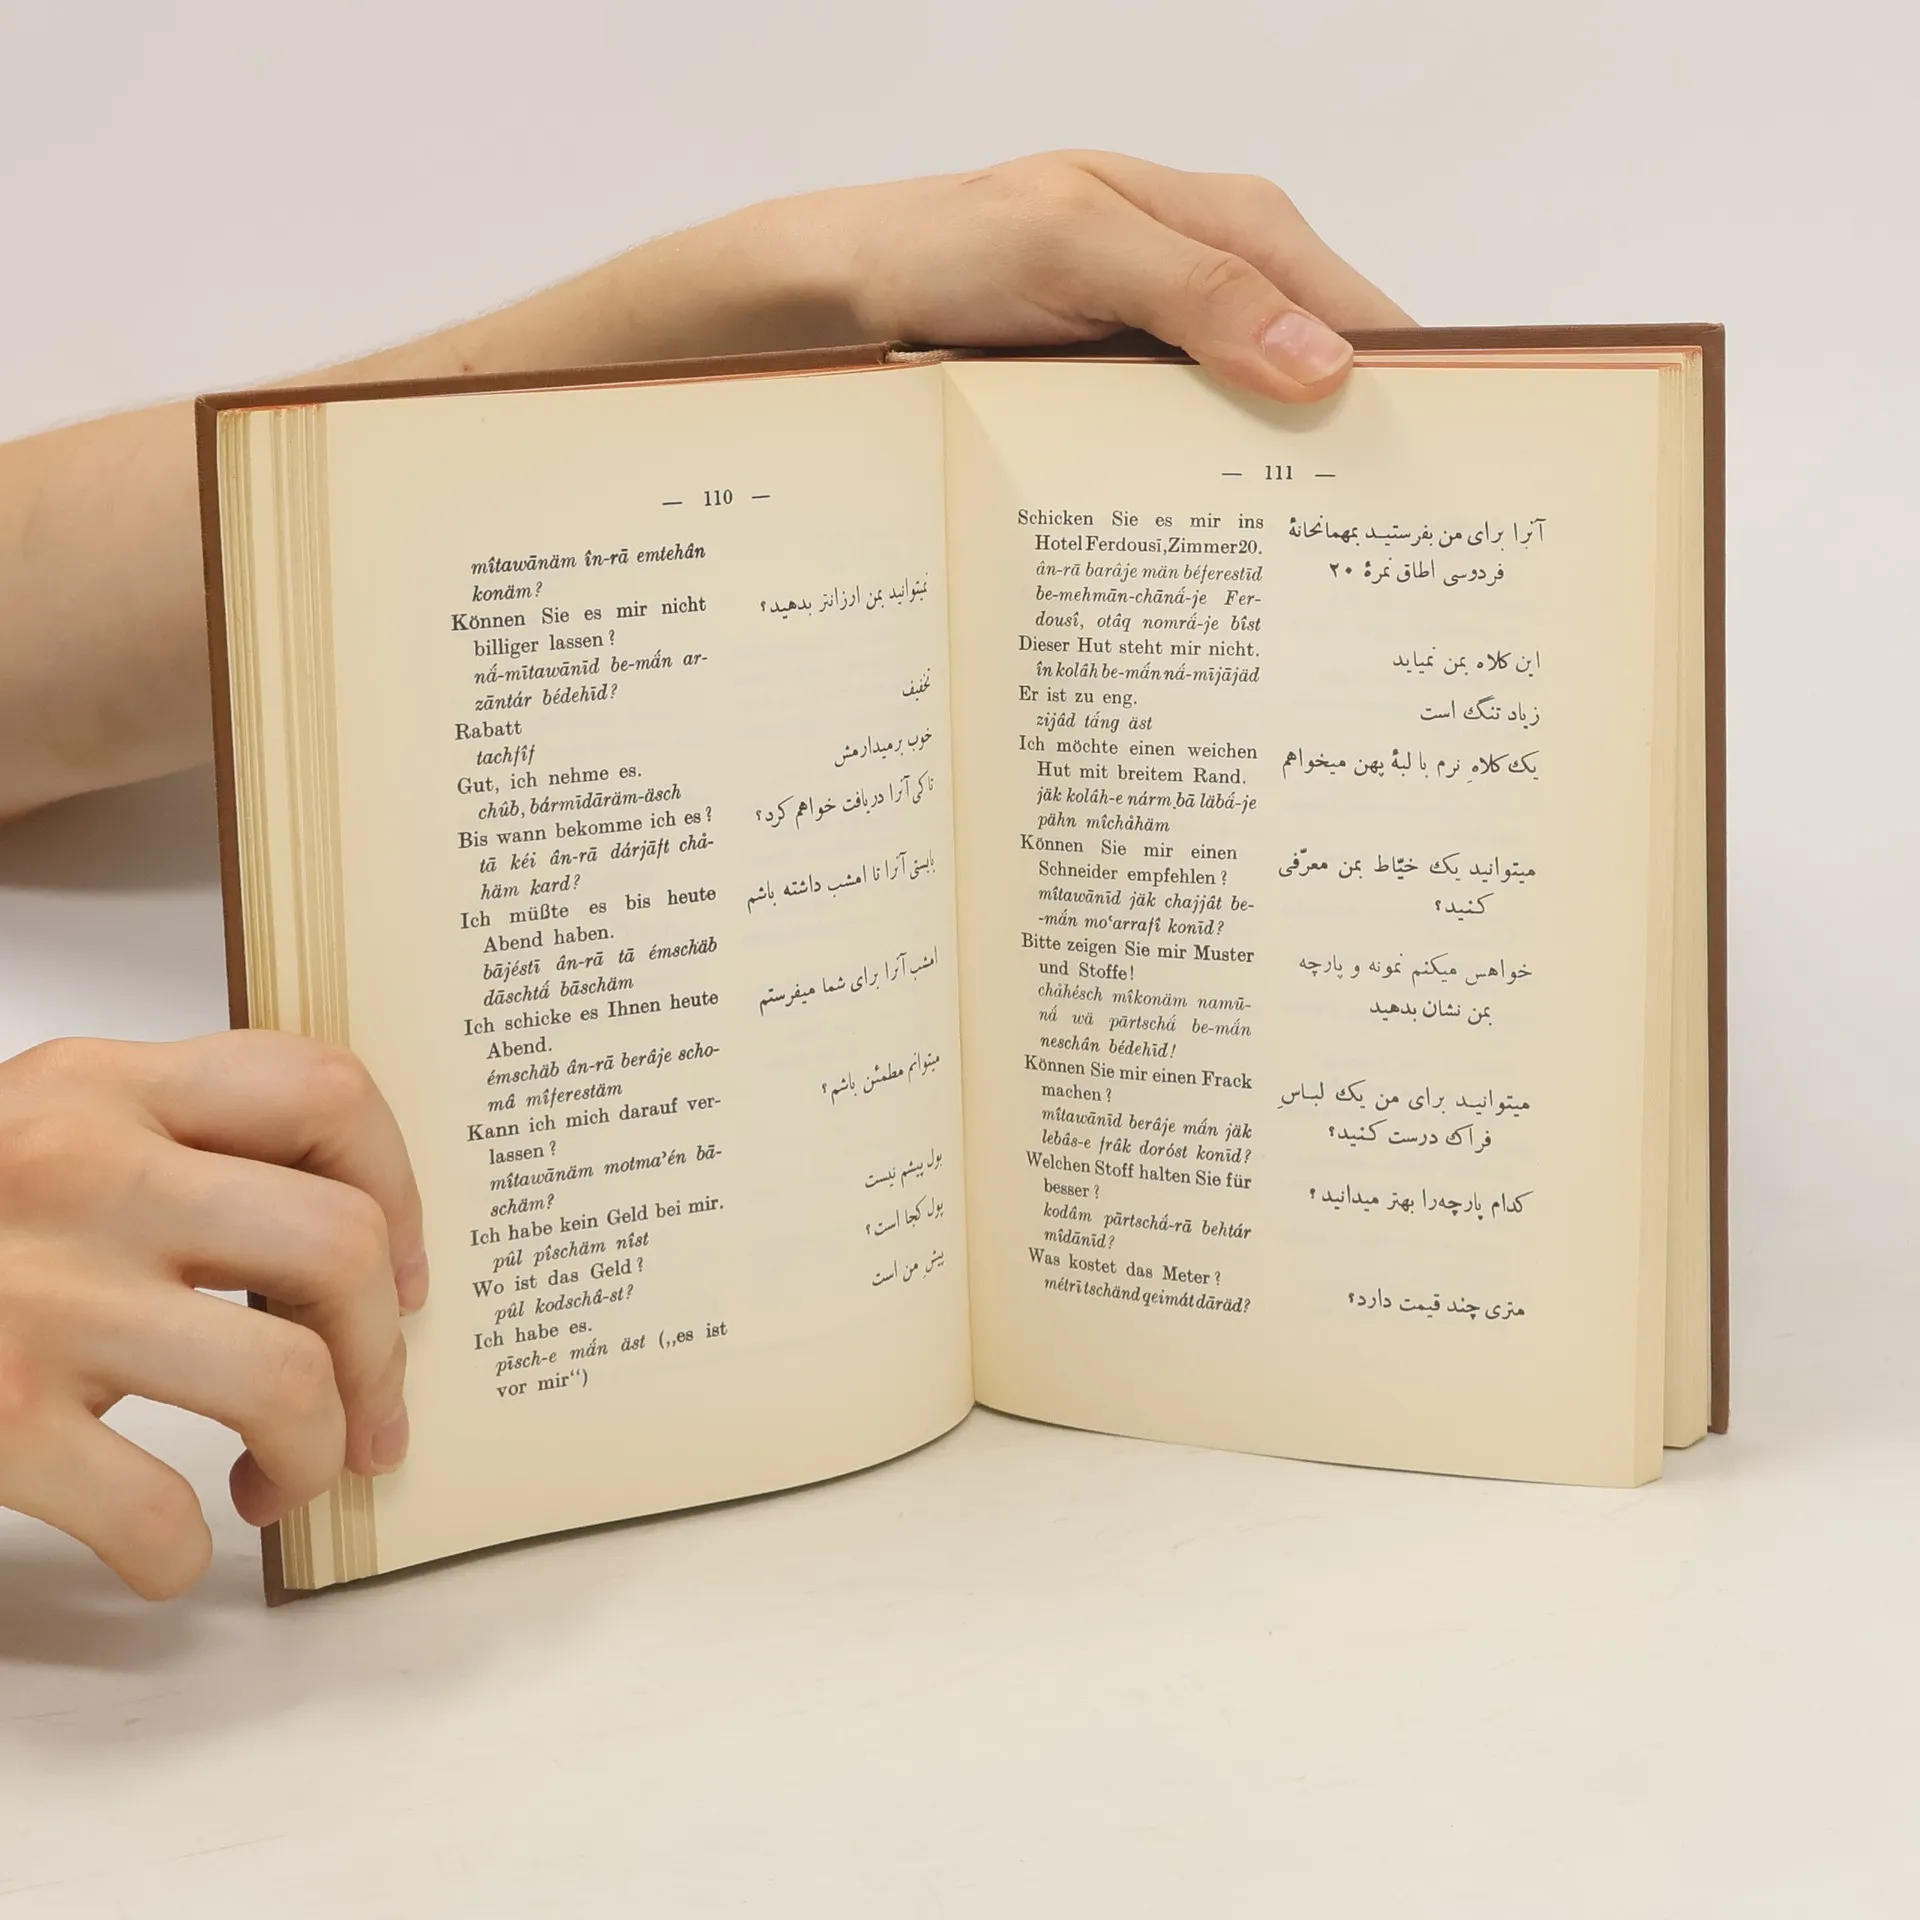 — 110 —
mîtawānäm în-rā emtehân
konäm?
Können Sie es mir nicht
billiger lassen?
nä́-mītawānīd be-mä́n ar-
zāntár bédehīd?
Rabatt
tachfîf
Gut, ich nehme es.
chûb, bármīdāräm-äsch
Bis wann bekomme ich es?
tā kéi ân-rā dárjāft chå-
häm kard?
Ich müßte es bis heute
Abend haben.
bājéstī ân-rā tā émschäb
dāschtä́ bāschäm
Ich schicke es Ihnen heute
Abend.
émschäb ân-rā berâje scho-
mâ mîferestäm
Kann ich mich darauf ver-
lassen?
mîtawānäm motma’én bā-
schäm?
Ich habe kein Geld bei mir.
pûl pîschäm nîst
Wo ist das Geld?
pûl kodschâ-st?
Ich habe es.
pīsch-e mä́n äst („es ist
vor mir“)
نمیتوانید بمن ارزانتر بدهید؟
تخفیف
خوب برمیدارمش
تا کی آنرا دریافت خواهم کرد؟
بایستی آنرا تا امشب داشته باشم
امشب آنرا برای شما میفرستم
میتوانم مطمئن باشم؟
پول پیشم نیست
پول کجا است؟
پیشِ من است
— 111 —
Schicken Sie es mir ins
Hotel Ferdousī, Zimmer 20.
ân-rā barâje män béferestīd
be-mehmān-chānä́-je Fer-
dousî, otâq nomrä́-je bîst
Dieser Hut steht mir nicht.
în kolâh be-mä́n nä́-mījājäd
Er ist zu eng.
zijâd tä́ng äst
Ich möchte einen weichen
Hut mit breitem Rand.
jäk kolâh-e nárm bā läbä́-je
pähn mîchåhäm
Können Sie mir einen
Schneider empfehlen?
mîtawānīd jäk chajjât be-
-mä́n mo‘arrafî konīd?
Bitte zeigen Sie mir Muster
und Stoffe!
chåhésch mîkonäm namū-
nä́ wä pārtschä́ be-mä́n
neschân bédehīd!
Können Sie mir einen Frack
machen?
mîtawānīd berâje mä́n jäk
lebâs-e frâk doróst konīd?
Welchen Stoff halten Sie für
besser?
kodâm pārtschä́-rā behtár
mîdānīd?
Was kostet das Meter?
métrī tschänd qeimát dāräd?
آنرا برای من بفرستید بمهمانخانهٔ
فردوسی اطاق نمرهٔ ۲۰
این کلاه بمن نمیاید
زیاد تنگ است
یک کلاهِ نرم با لبهٔ پهن میخواهم
میتوانید یک خیّاط بمن معرّفی
کنید؟
خواهس میکنم نمونه و پارچه
بمن نشان بدهید
میتوانید برای من یک لباسِ
فراک درست کنید؟
کدام پارچه‌را بهتر میدانید؟
متری چند قیمت دارد؟